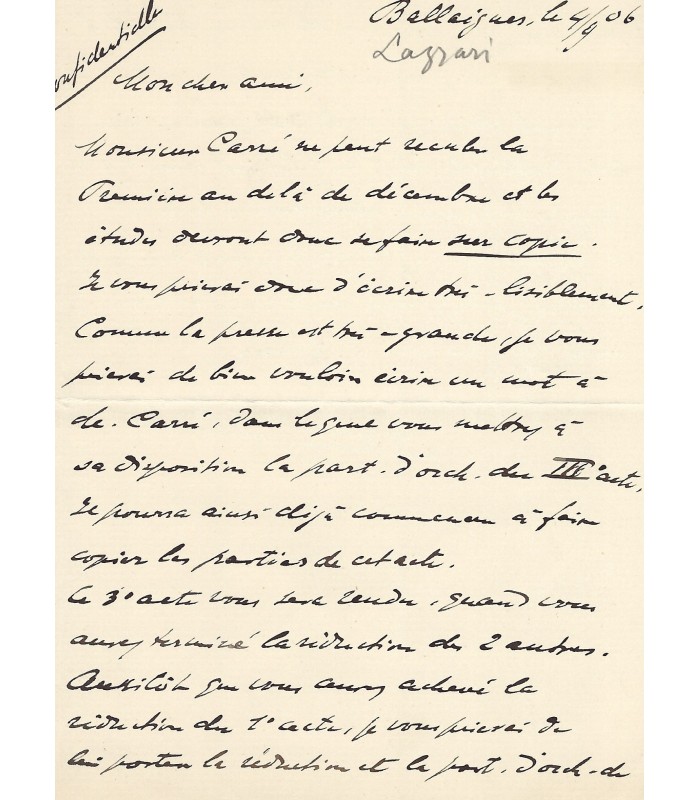 Ballaigues, le 4/9 06
Lazzari
Confidentielle
Mon cher ami,
Monsieur Carré ne peut reculer la
Première au delà de décembre et les
études devront donc se faire sur copie.
Je vous prierai donc d'écrire très-lisiblement.
Comme la presse est très-grande, je vous
prierai de bien vouloir écrire un mot à
de. Carré, dans lequel vous mettrez à
sa disposition la part. d'orch. du IIIe acte.
Il pourra ainsi déjà commencer à faire
copier les parties de cet acte.
Ce 3e acte vous sera rendu, quand vous
aurez terminé la réduction des 2 autres.
Aussitôt que vous aurez achevé la
réduction du 1e acte, je vous prierai de
lui porter la réduction et la part. d'orch. de